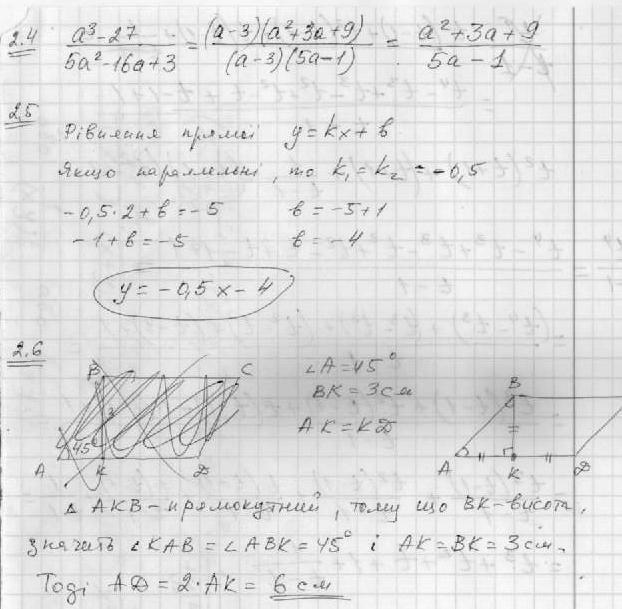 2.4 a³-27 / 5a²-16a+3 = (a-3)(a²+3a+9) / (a-3)(5a-1) = a²+3a+9 / 5a-1
2.5
Рівняння прямої y=kx+в
Якщо паралельні, то k₁=k₂=-0,5
-0,5·2+в=-5 в=-5+1
-1+в=-5 в=-4
y=-0,5x-4
2.6
B C
∠A=45°
BK=3см
AK=KD
3
45°
A K D
B
A K D
△ AKB-прямокутний, тому що BK-висота,
значить ∠KAB=∠ABK=45° і AK=BK=3см.
Тоді AD=2·AK=6см